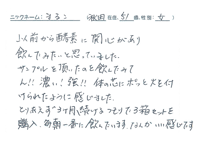 ニックネーム: まるこ (秋田 在住, 51 歳, 性別: 女 )
以前から酵素に関心があり
飲んでみたーと思っていました。
サンプルを頂いたのを飲んでみて
ん!! 濃い! 銀!! 体の芯にポッと火を付
けられたように感じました。
とりあえず3ヶ月続けるつもりで3箱セットを
購入。毎朝一番に飲んでいます。なんか いい感じです